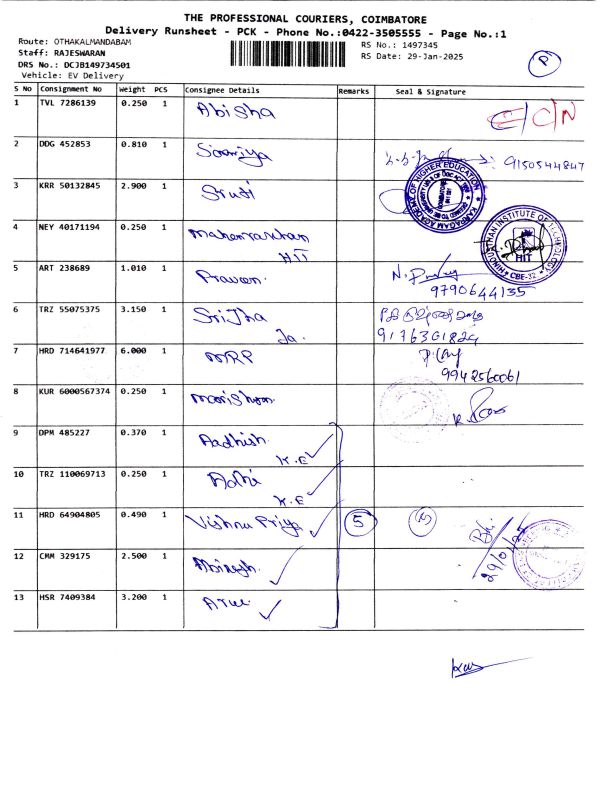 THE PROFESSIONAL COURIERS, COIMBATORE
Delivery Runsheet - PCK - Phone No.:0422-3505555 - Page No.:1
Route: OTHAKALMANDABAM
RS No.: 1497345
Staff: RAJESWARAN
RS Date: 29-Jan-2025
DRS No.: DCJB149734501
Vehicle: EV Delivery
P
S No Consignment No Weight PCS Consignee Details Remarks Seal & Signature
1 TVL 7286139 0.250 1 Abisha C/N
2 DDG 452853 0.810 1 Sooriya 9150544847
3 KRR 50132845 2.900 1 Sruti
KARPAGAM ACADEMY OF HIGHER EDUCATION
4 NEY 40171194 0.250 1
HIT
HINDUSTHAN INSTITUTE OF TECHNOLOGY
HIT
CBE-32
5 ART 238689 1.010 1 Praveen
9790644135
6 TRZ 55075375 3.150 1 SriJha
Ja.
9176301824
7 HRD 714641977 6.000 1 MRP
9942560061
8 KUR 6000567374 0.250 1
9 DPM 485227 0.370 1 Aadhish
K.E
10 TRZ 110069713 0.250 1 Adhi
K.E
11 HRD 64904805 0.490 1 Vishnu Priya 5
12 CMM 329175 2.500 1
13 HSR 7409384 3.200 1 Arul